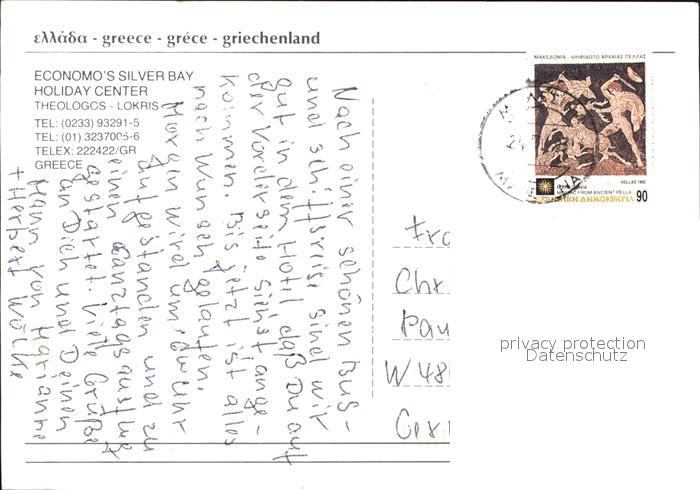 ελλάδα - greece - gréce - griechenland
ECONOMO'S SILVER BAY
HOLIDAY CENTER
THEOLOGOS - LOKRIS
TEL: (0233) 93291-5
TEL: (01) 3237005-6
TELEX: 222422/GR
GREECE
Nach einer schönen Buß-
und schiffsreise sind wir
gut in dem Hotel daß Du auf
der Vorderseite siehst ange-
kommen. Bis jetzt ist alles
nach Wunsch gelaufen.
Morgen wird um Uhr
aufgestanden und zu
einen Ganztagsausflug
gestartet. Viele Grüße
an Dich und Deinen
Mann von Marianne
+ Herbert Wölke
ΜΑΚΕΔΟΝΙΑ - ΨΗΦΙΔΩΤΟ ΑΡΧΑΙΑΣ ΠΕΛΛΑΣ
HELLAS 1992
FROM ANCIENT PELLA
ΕΛΛΗΝΙΚΗ ΔΗΜΟΚΡΑΤΙΑ 90
Fra
Chr
Pau
W 48
privacy protection
Datenschutz